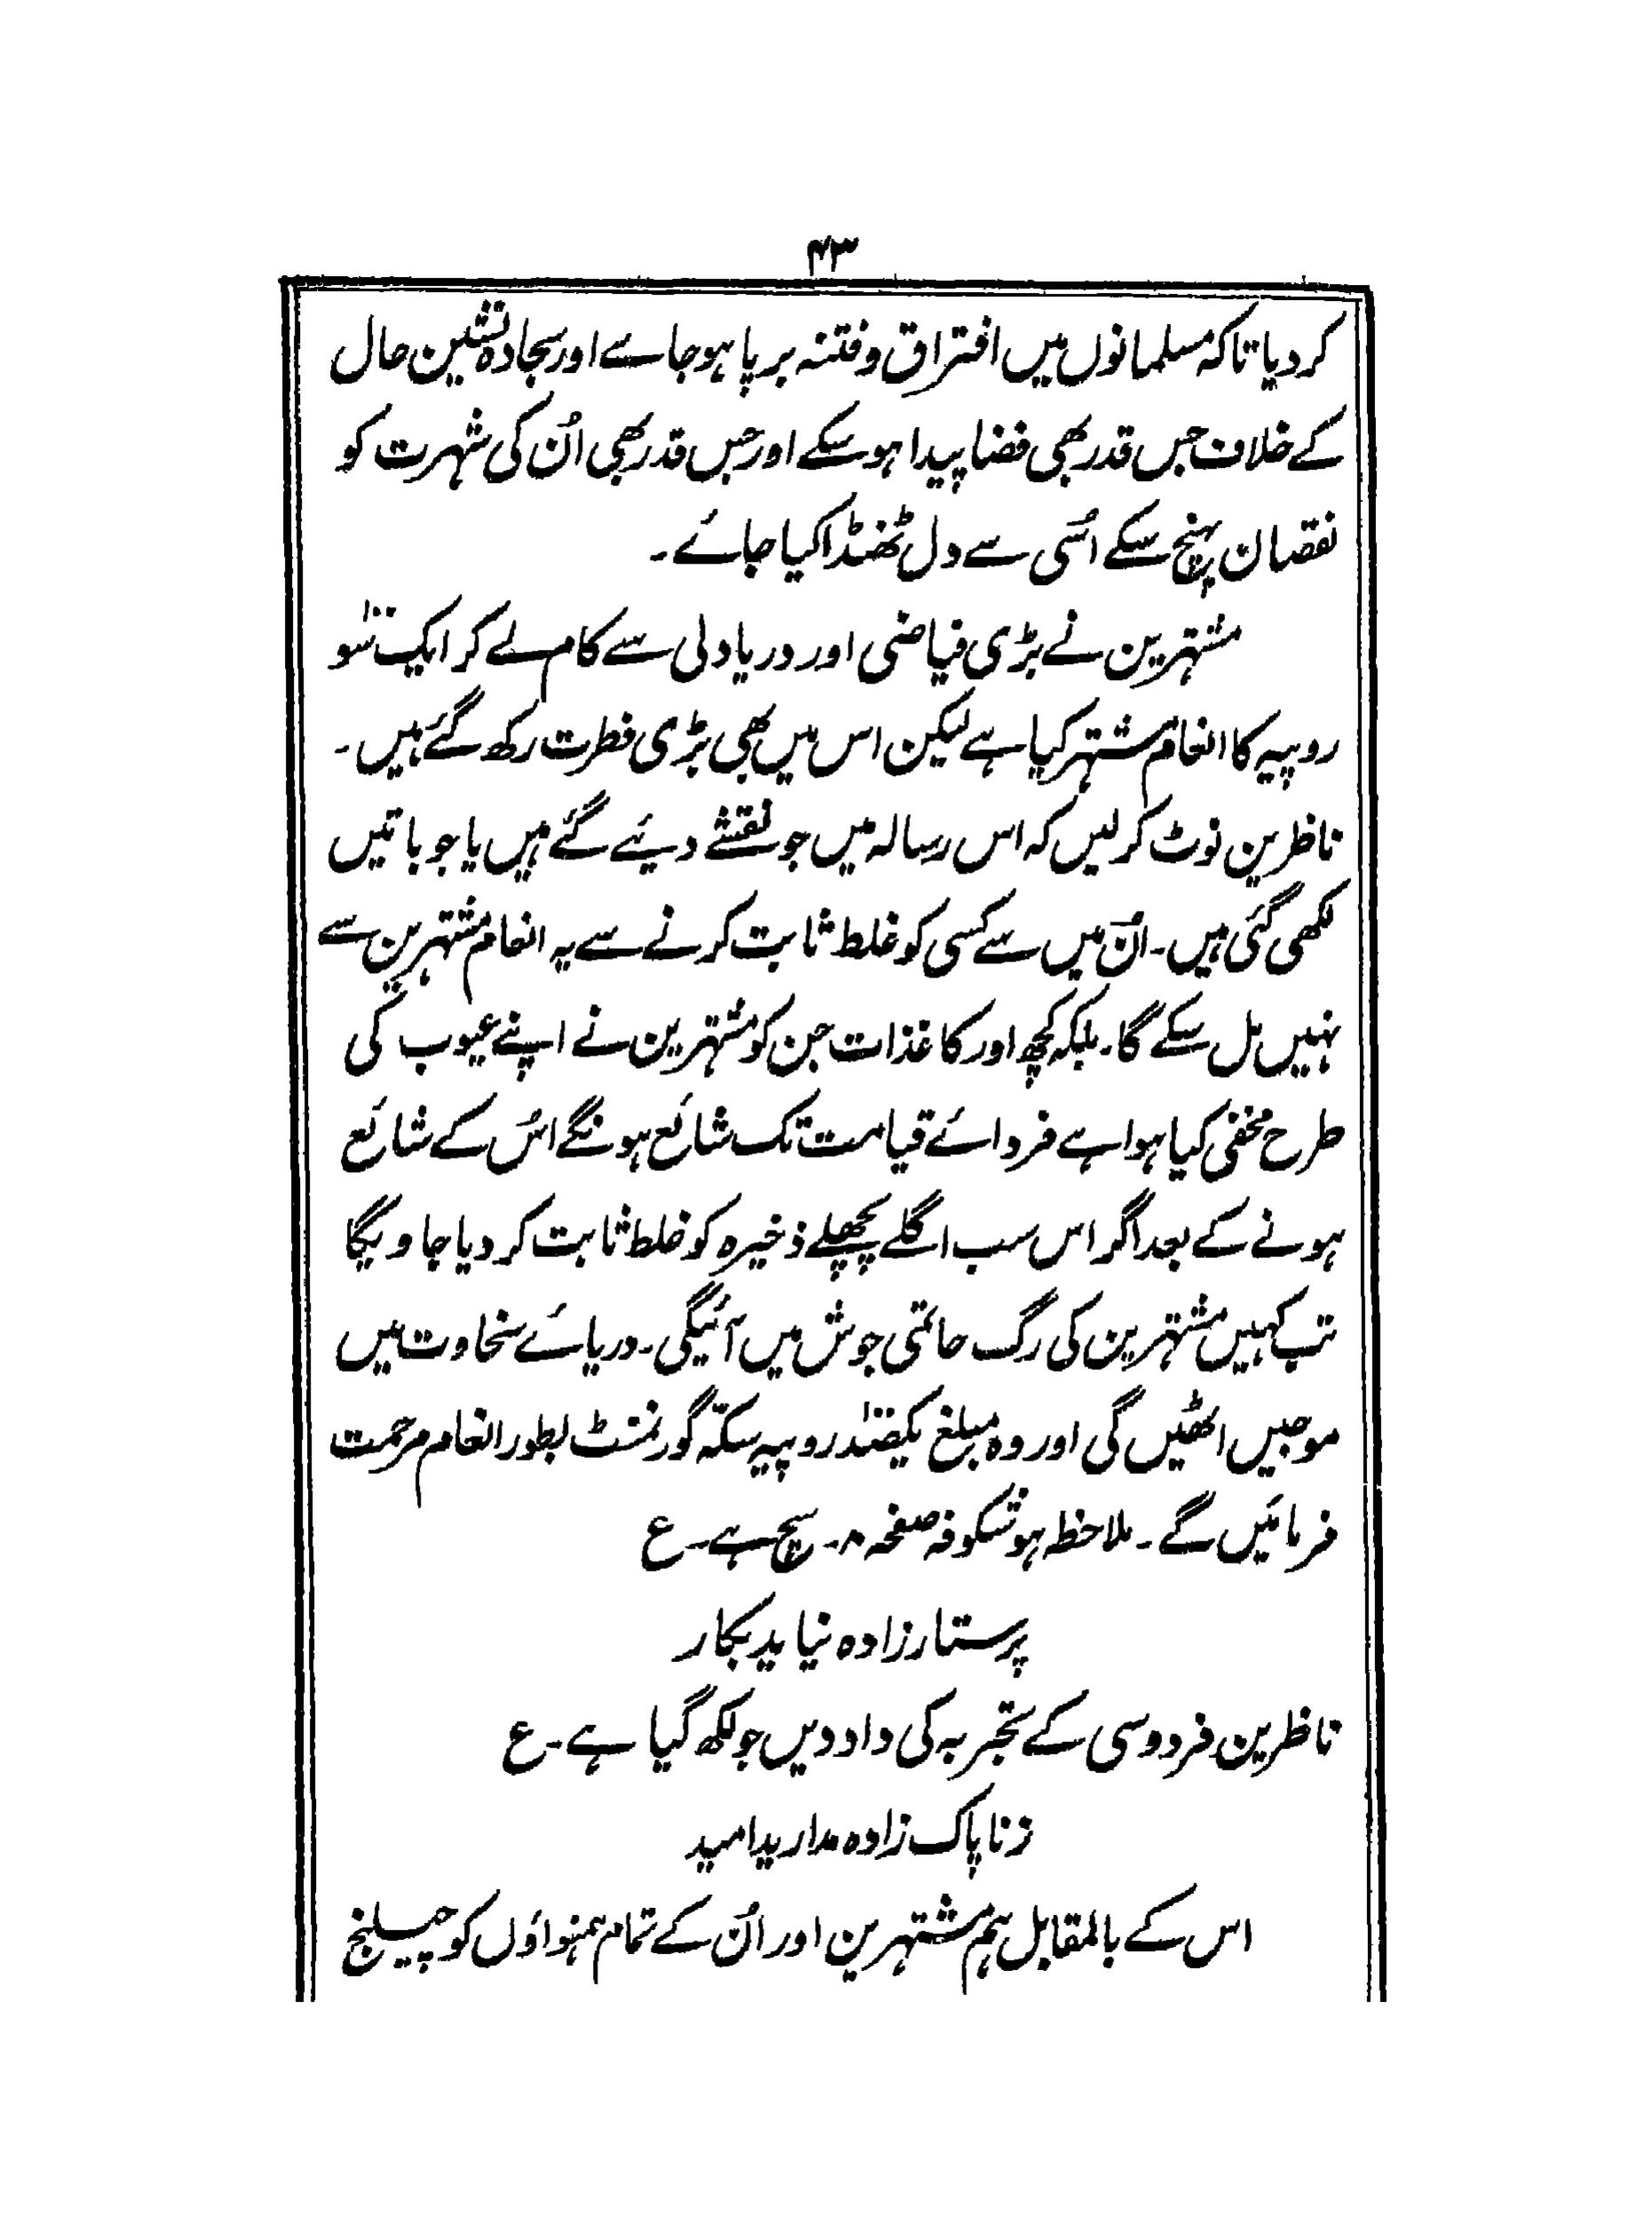 ۴۳
کردیا تاکہ مسلمانوں میں افتراق وفتنہ برپا ہوجاے اور سجادہ نشین حال
کے خلاف جس قدر بھی فضا پیدا ہوسکے اور جس قدر بھی اُن کی شہرت کو
نقصان پہنچ سکے اسُی سے دل ٹھنڈا کیا جائے۔
مشتہرین نے بڑی فیاضی اور دریا دلی سے کام لے کر ایک سو
روپیہ کا انعام مشتہر کیا ہے لیکن اس میں بھی بڑی فطرت رکھ گئے ہیں۔
ناظرین نوٹ کرلیں کہ اس رسالہ میں جو نقشے دیئے گئے ہیں یا جو باتیں
لکھی گئی ہیں۔ اُن میں سے کسی کو غلط ثابت کرنے سے یہ انعام مشتہرین سے
نہیں مل سکے گا۔ بلکہ کچھ اور کاغذات جن کو مشتہرین نے اپنے عیوب کی
طرح مخفی کیا ہوا ہے فردائے قیامت تک شائع ہونگے اسُ کے شائع
ہونے کے بعد اگر اس سب اگلے پچھلے ذخیرہ کو غلط ثابت کر دیا جاویگا
تب کہیں مشتہرین کی رگ حاتمی جوش میں آئیگی۔ دریائے سخاوت میں
موجیں اٹھیں گی اور وہ مبلغ یکصد روپیہ سکّہ گورنمنٹ بطور انعام مرحمت
فرمائیں گے۔ ملاحظہ ہو شگوفہ صفحہ ۸۔ سچ ہے۔ ع
پرستار زادہ نیاید بکار
ناظرین فردوسی کے تجربہ کی داد دیں جو لکھ گیا ہے۔ ع
زناپاک زادہ مدارید امید
اس کے بالمقابل ہم مشتہرین اور اُن کے تمام ہمنواؤں کو چیلنج